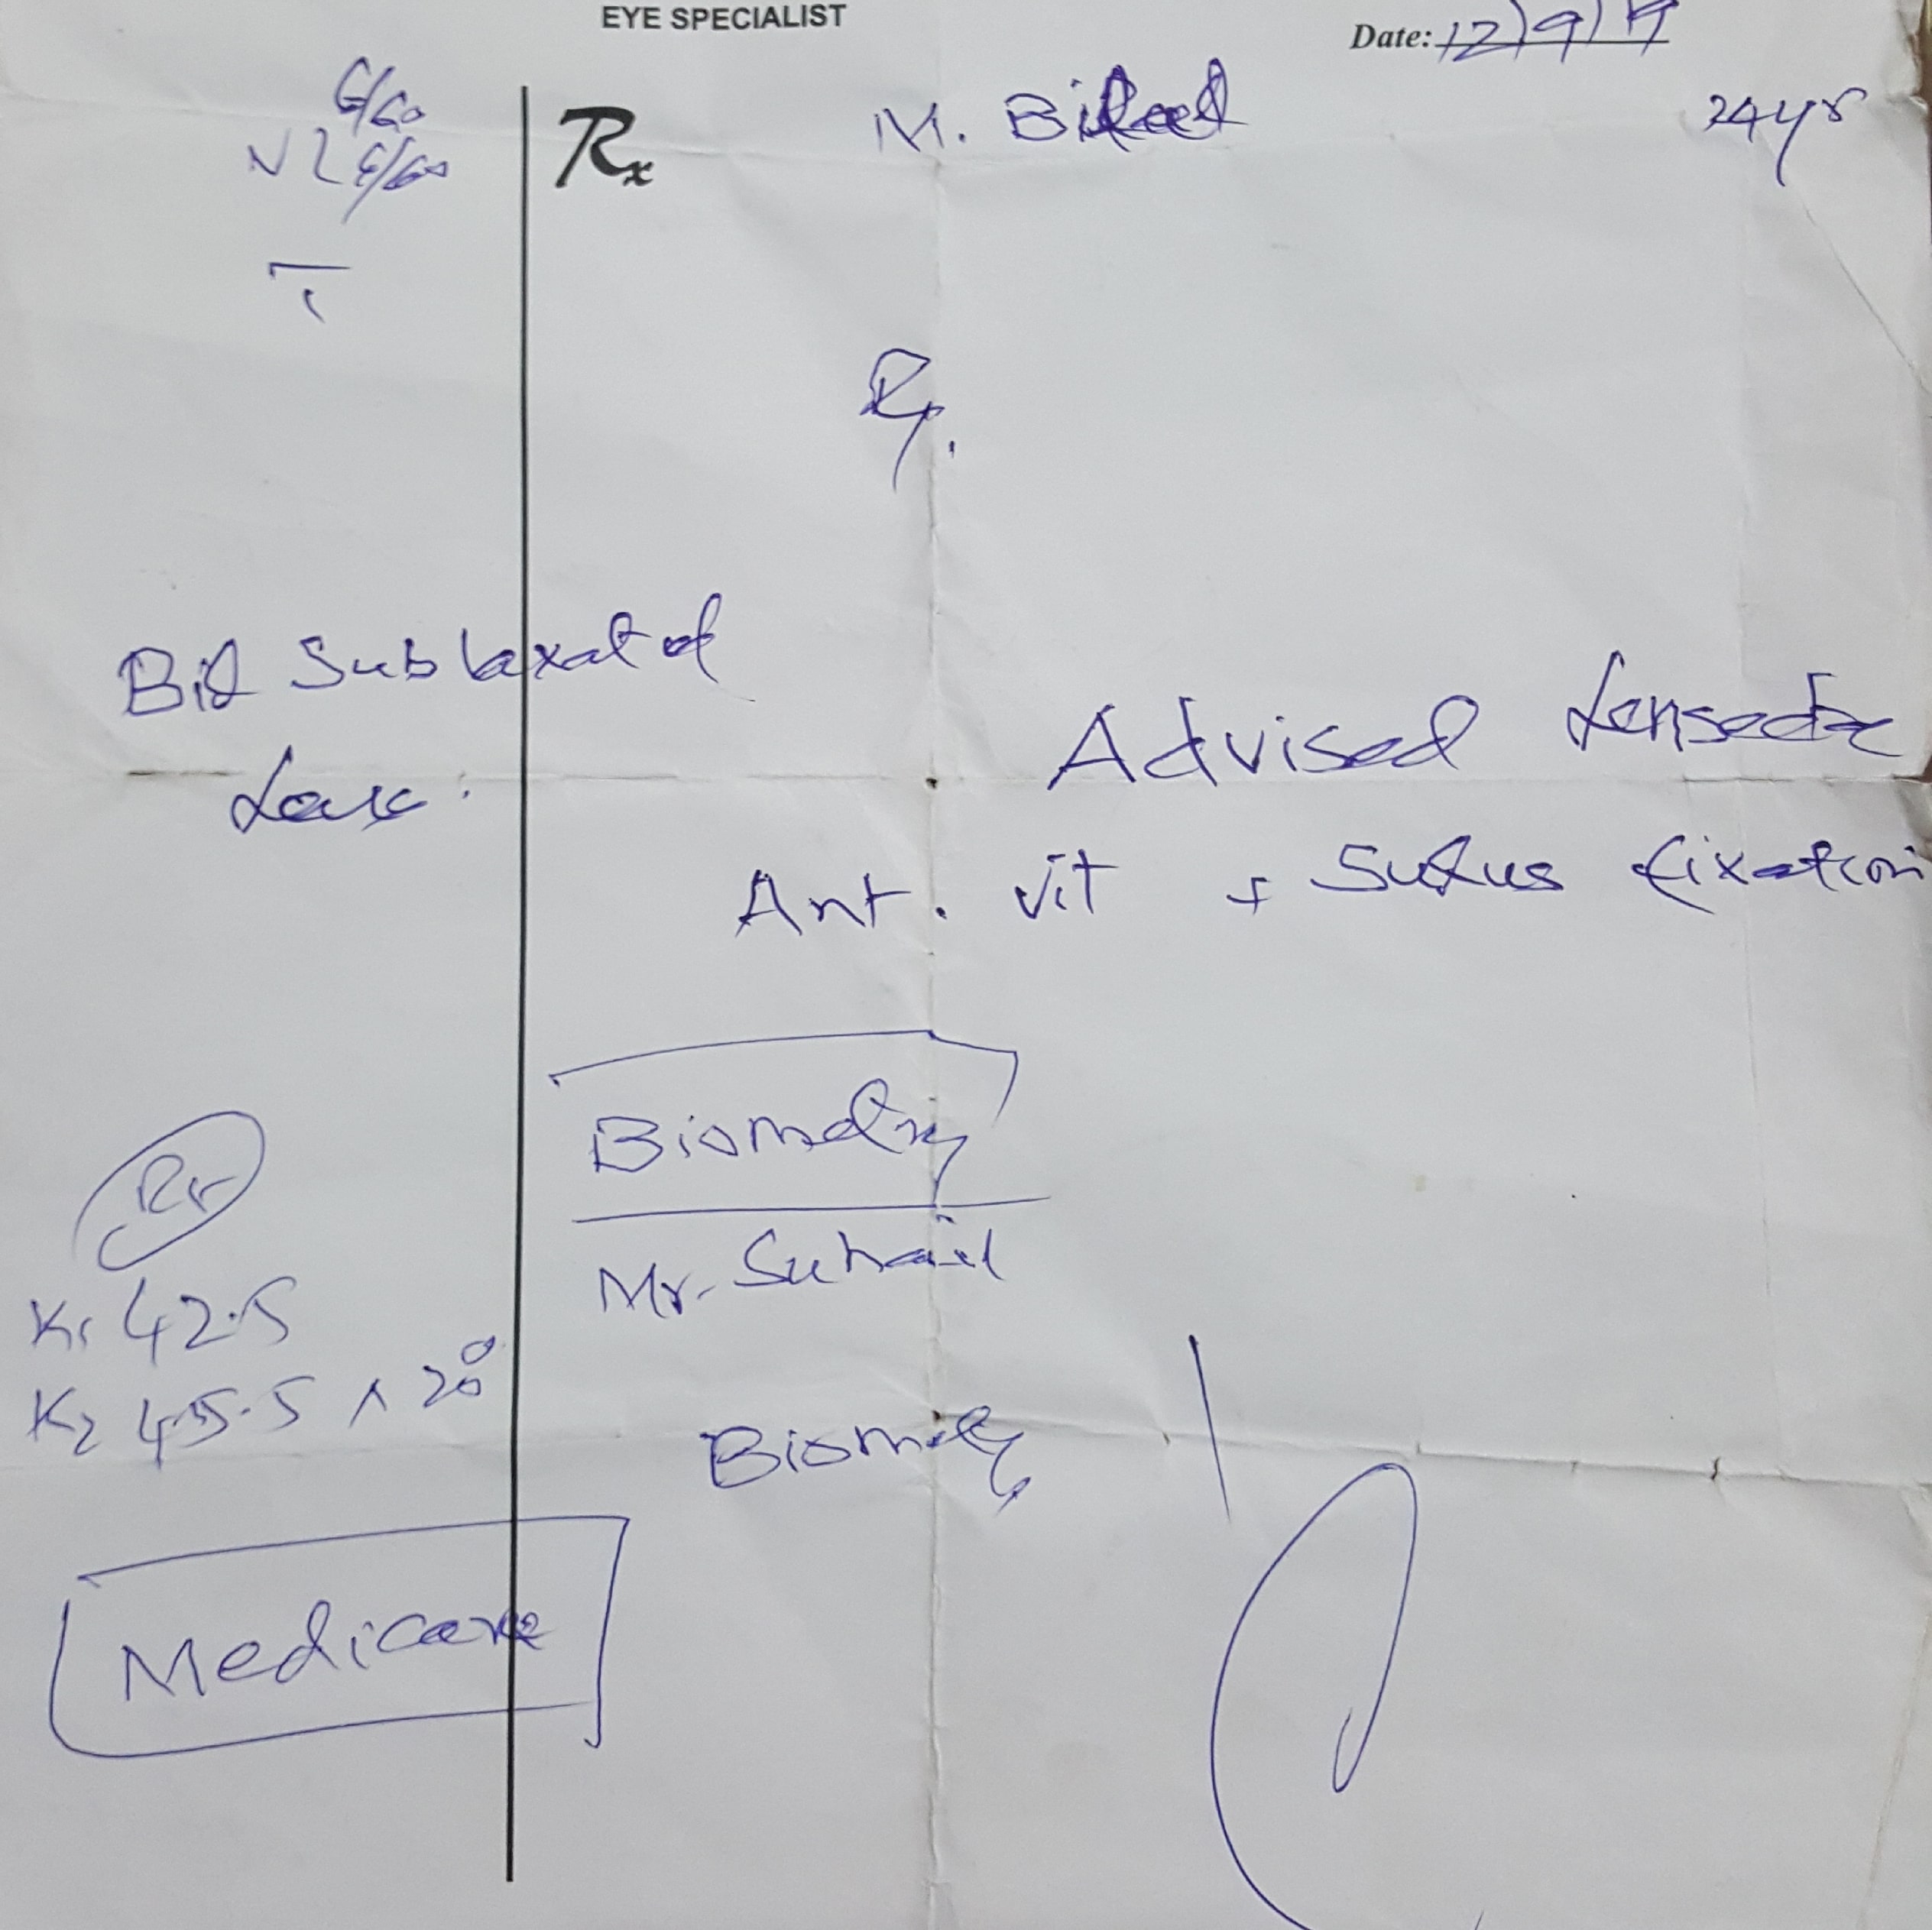 EYE SPECIALIST
Date: 12/9/19
6/60
V 6/60
Rx
M. Bilal
24yr
T
Bil Subluxated
Lens.
Advised Lensecto
Ant. Vit + Sulcus fixation
Biometry
Mr. Suhail
Rt
K1 42.5
K2 45.5 x 20°
Biometry
Medicare